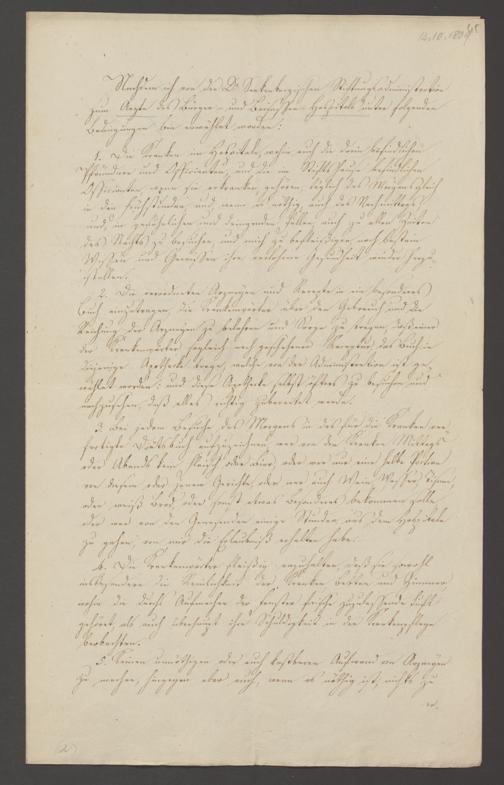 14.10.180
Nachdem ich von der Dr Senkenbergischen Stiftungsadministration
zum Arzte des Bürger- und Beisassen-Hospitals unter folgenden
Bedingungen bin erwählt worden:
1. Die Kranken im Hospitale, wohin auch die darin befindlichen
Pfründner und Officianten, und die im Stifts Hause befindlichen
Officianten, wenn sie erkranken gehören, täglich des Morgens gleich
in den Frühstunden, und wenn es nöthig, auch des Nachmittags
und in gefährlichen und dringenden Fällen auch zu allen Zeiten
des Nachts zu besuchen, und mich zu befleissigen nach bestem
Wissen und Gewissen ihre verlohrne Gesundheit wieder herzu
stellen.
2. Die verordneten Arzneyen und Recepte in ein besonderes
Buch einzutragen, die Krankenwärter über den Gebrauch und die
Reichung der Arzneyen zu belehren und Sorge zu tragen, daß einer
der Krankenwärter sogleich nach geschehener das Buch in
diejenige Apotheke trage, welche von der Administration ist ge
wählt worden; und diese Apotheke selbst öfters zu besuchen und
nachzusehen, daß alles richtig zubereitet werde.
3. Bei jedem Besuche des Morgens in das für die Kranken ver
fertigte Diätsbuch aufzuzeichnen, wer von den Kranken Mittags
oder Abends kein Fleisch oder Bier, oder wer nur eine halbe Portion
von diesem oder jenem Gerichte, oder wer auch Wein, Wasser,
oder weiß Brod, oder sonst etwas Besonderes bekommen solle,
oder wer von den Genesenden einige Stunden aus dem Hospitale
zu gehen, von mir die Erlaubniß erhalten habe.
4. Die Krankenwärter fleissig anzuhalten, daß sie sowohl
insbesondere die Reinlichkeit der Kranken Betten und Zimmer
wohin die durch Aufmachen der Fenster frische zuzulassende Luft
gehört, als auch überhaupt ihre Schuldigkeit in der Krankenpflege
beobachten.
5. Keinen unnöthigen oder auch kostbaren Aufwand an Arzneyen
zu machen, hingegen aber auch, wenn es nöthig ist, nichts zu